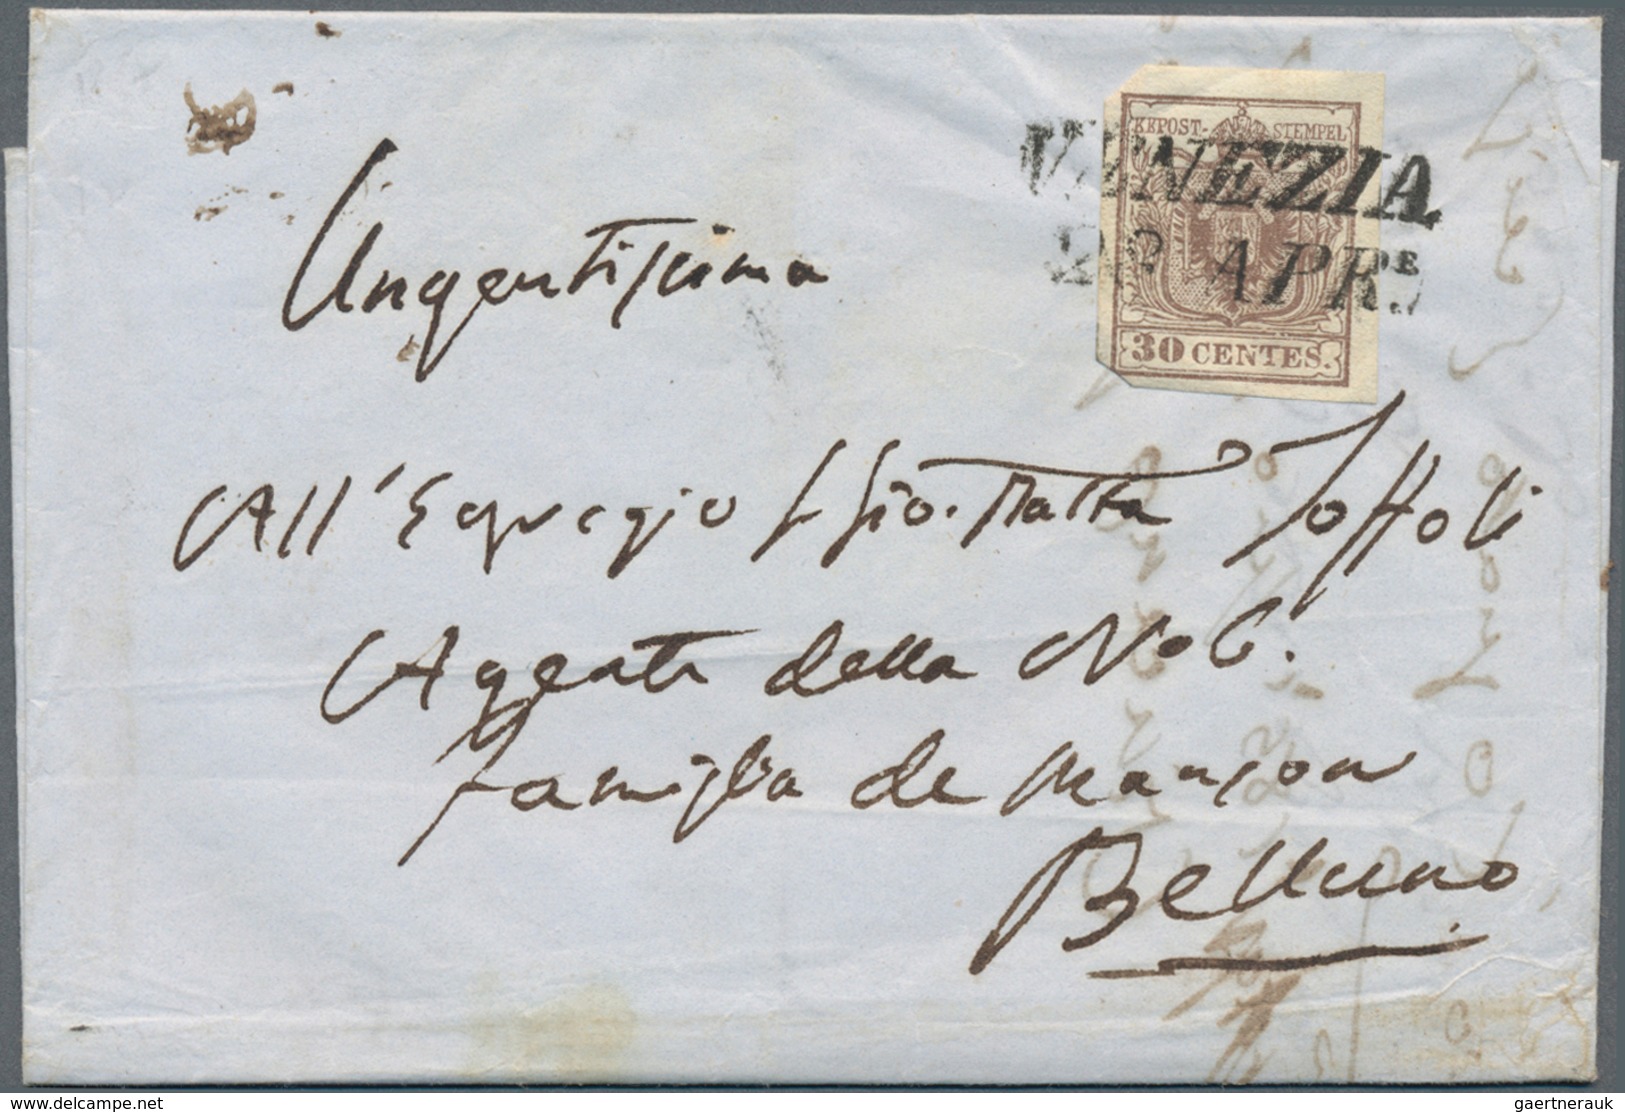 KKPOST-STEMPEL
VENEZIA
APR.
30 CENTES.
Urgentissima
All'Egregio Sigr Gio. Batta Toffoli
Agente della Nob.
famiglia de Manzoni
Belluno
www.delcampe.net
gaertnerauk